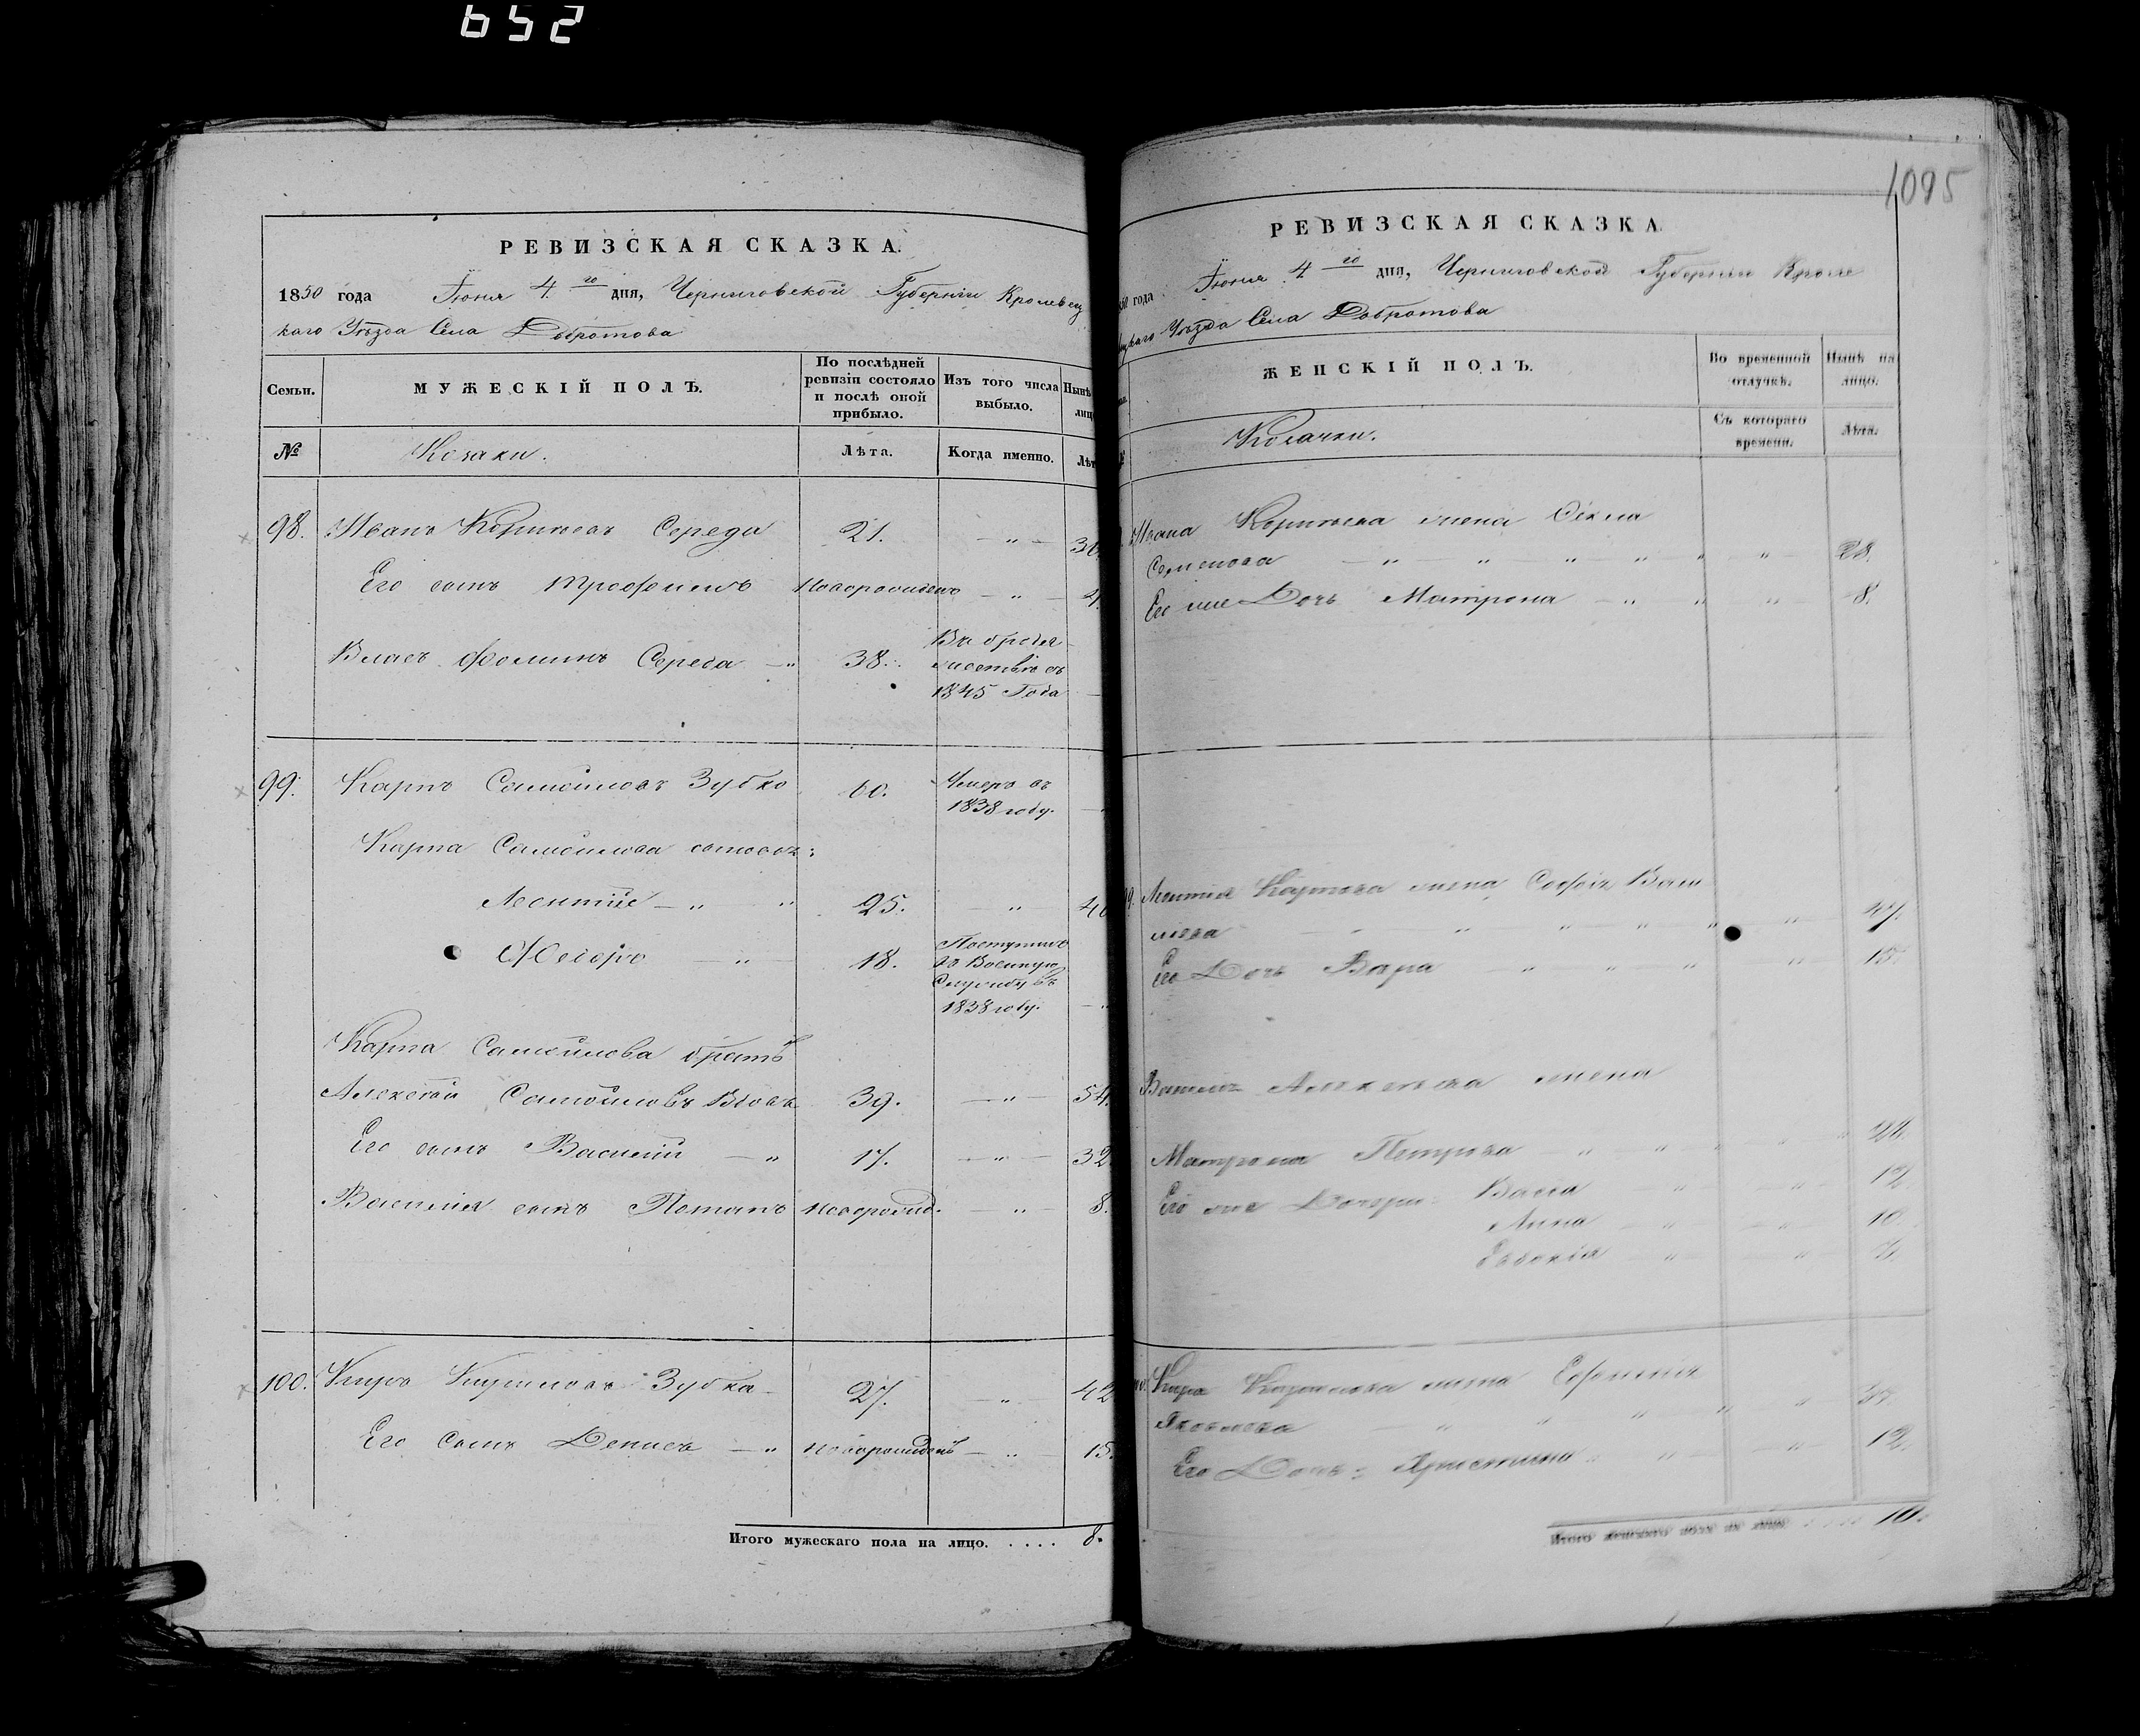 652
РЕВИЗСКАЯ СКАЗКА.
1850 года Іюня 4го дня, Черниговской Губерніи Кролевец
каго Уѣзда Села Добротова
Семьи.
МУЖЕСКІЙ ПОЛЪ.
По послѣдней
ревизіи состояло
и послѣ оной
прибыло.
Изъ того числа
выбыло.
Нынѣ
лиц
№
Козаки.
Лѣта.
Когда именно.
Лѣт
98. Иванъ Середа 21. — " —
Его сынъ Трофимъ новорожденъ — " — 4.
Власъ Фоминъ Середа — " 38.
1845 Года
99. Карпъ Самойловъ Зубко 60. Умеръ въ
1838 году.
Карпа Самойлова сыновья:
Леонтій — " " 25. "
Федоръ — " — 18. Поступилъ
въ Военную
Службу въ
1838 году.
Карпа Самойлова братъ
Алексѣй Самойловъ 39. — " — 54.
Его сынъ Василій — " 17. — " — 32
Василія сынъ Потапъ новорожд. — " — 8.
100. Киръ Зубка 27. — " — 42
Его сынъ Денисъ — " новорожденъ — " 15.
Итого мужескаго пола на лицо. . . . . 8.
1095
РЕВИЗСКАЯ СКАЗКА
года Іюня 4го дня, Черниговской Губерніи Кроле
Уѣзда Села Добротова
ЖЕНСКІЙ ПОЛЪ.
Во временной
отлучкѣ.
Нынѣ на
лицо.
Съ котораго
времени.
Лѣта.
Козачки.
Ивана жена
Семенова — " " " " " " 28.
Его же Дочь Матрона — " " " 8.
Леонтія Карпова жена Софія Васи
льева " " " " " "
Его Дочь " " " " 15.
Василія Алексѣева жена
Матрона Петрова — " "
Его же Дочери: Васса — " " 12
Анна — " " 10.
Евдокія — " "
Кира жена
Яковлева — " " " " "
Его Дочь: Христина " " " 12.
Итого женскаго пола на лицо . . . . 10.